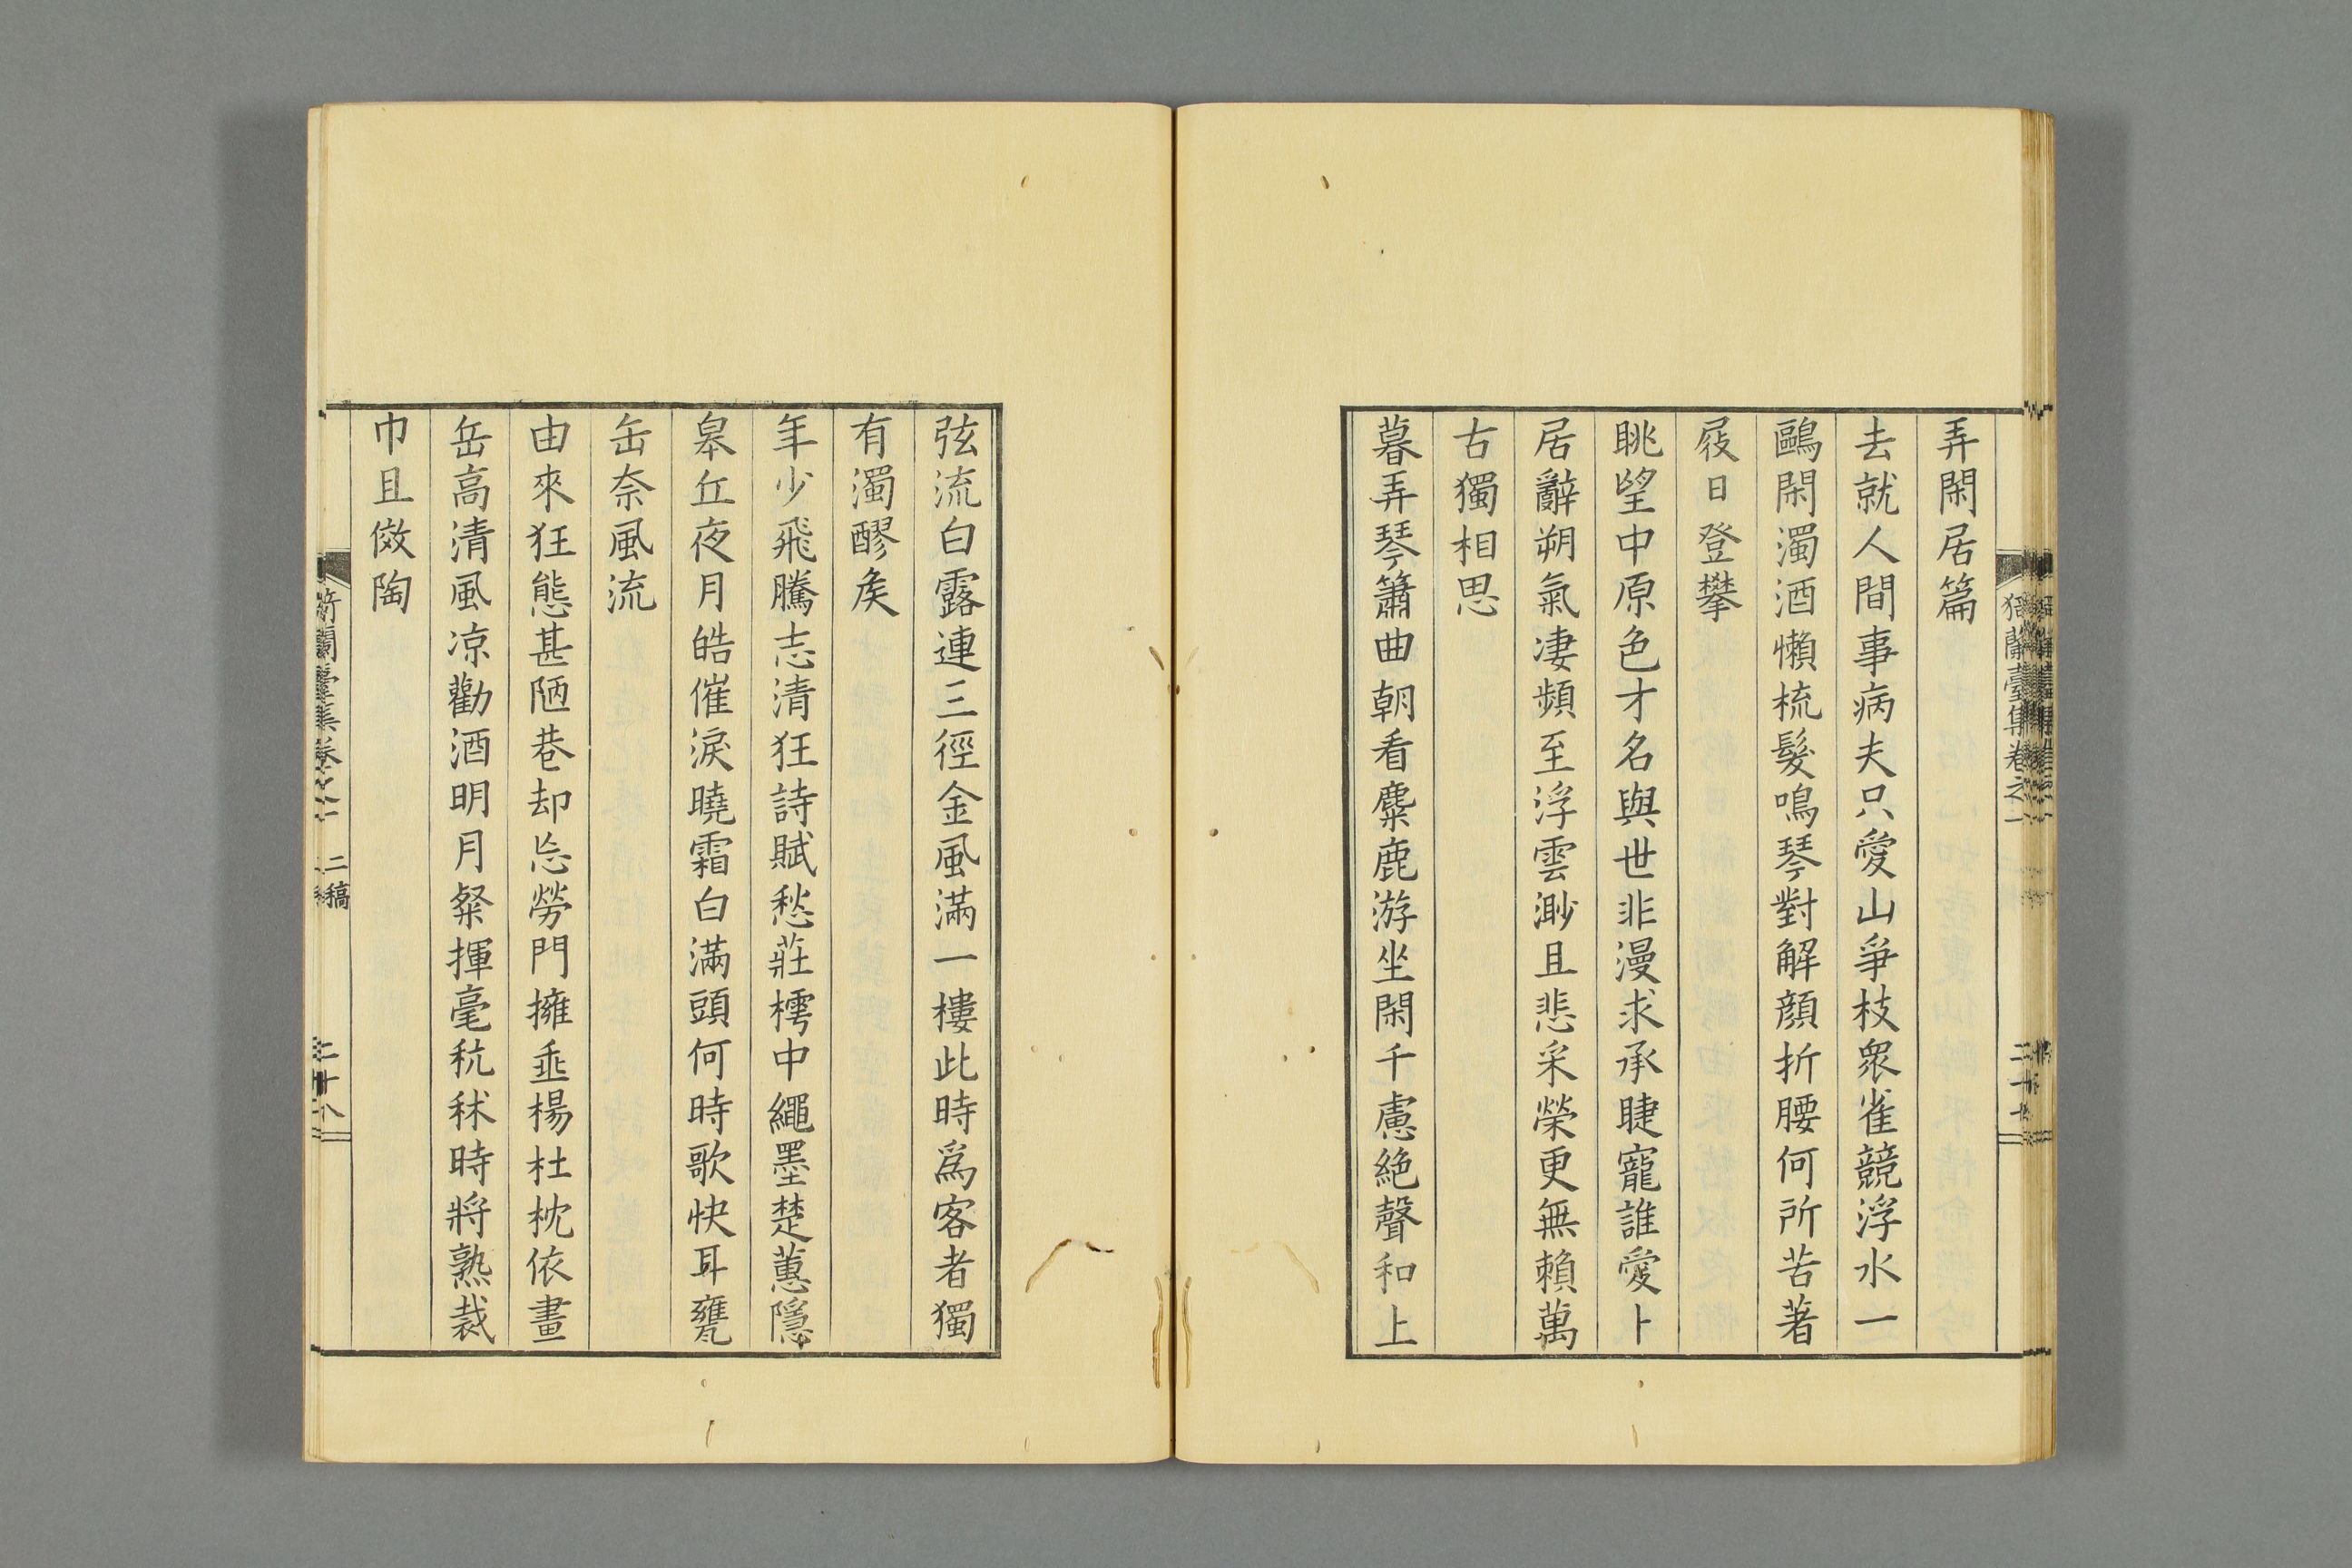 弄閑居篇
去就人間事病夫只愛山爭枝衆雀競浮水一
鷗閑濁酒懶梳髮鳴琴對解顔折腰何所苦著
屐日登攀
眺望中原色才名與世非漫求承睫寵誰愛卜
居辭朔氣凄頻至浮雲渺且悲采榮更無賴萬
古獨相思
暮弄琴簫曲朝看麋鹿游坐閑千慮絶聲和上
弦流白露連三徑金風滿一樓此時爲客者獨
有濁醪矦
年少飛騰志清狂詩賦愁莊樗中繩墨楚蕙隱
皐丘夜月皓催淚曉霜白滿頭何時歌快耳甕
缶奈風流
由來狂態甚陋巷却忘勞門擁垂楊杜枕依畫
岳高清風凉勸酒明月粲揮毫秔秫時將熟裁
巾且傚陶
蘭臺集卷之一
二稿
二十八